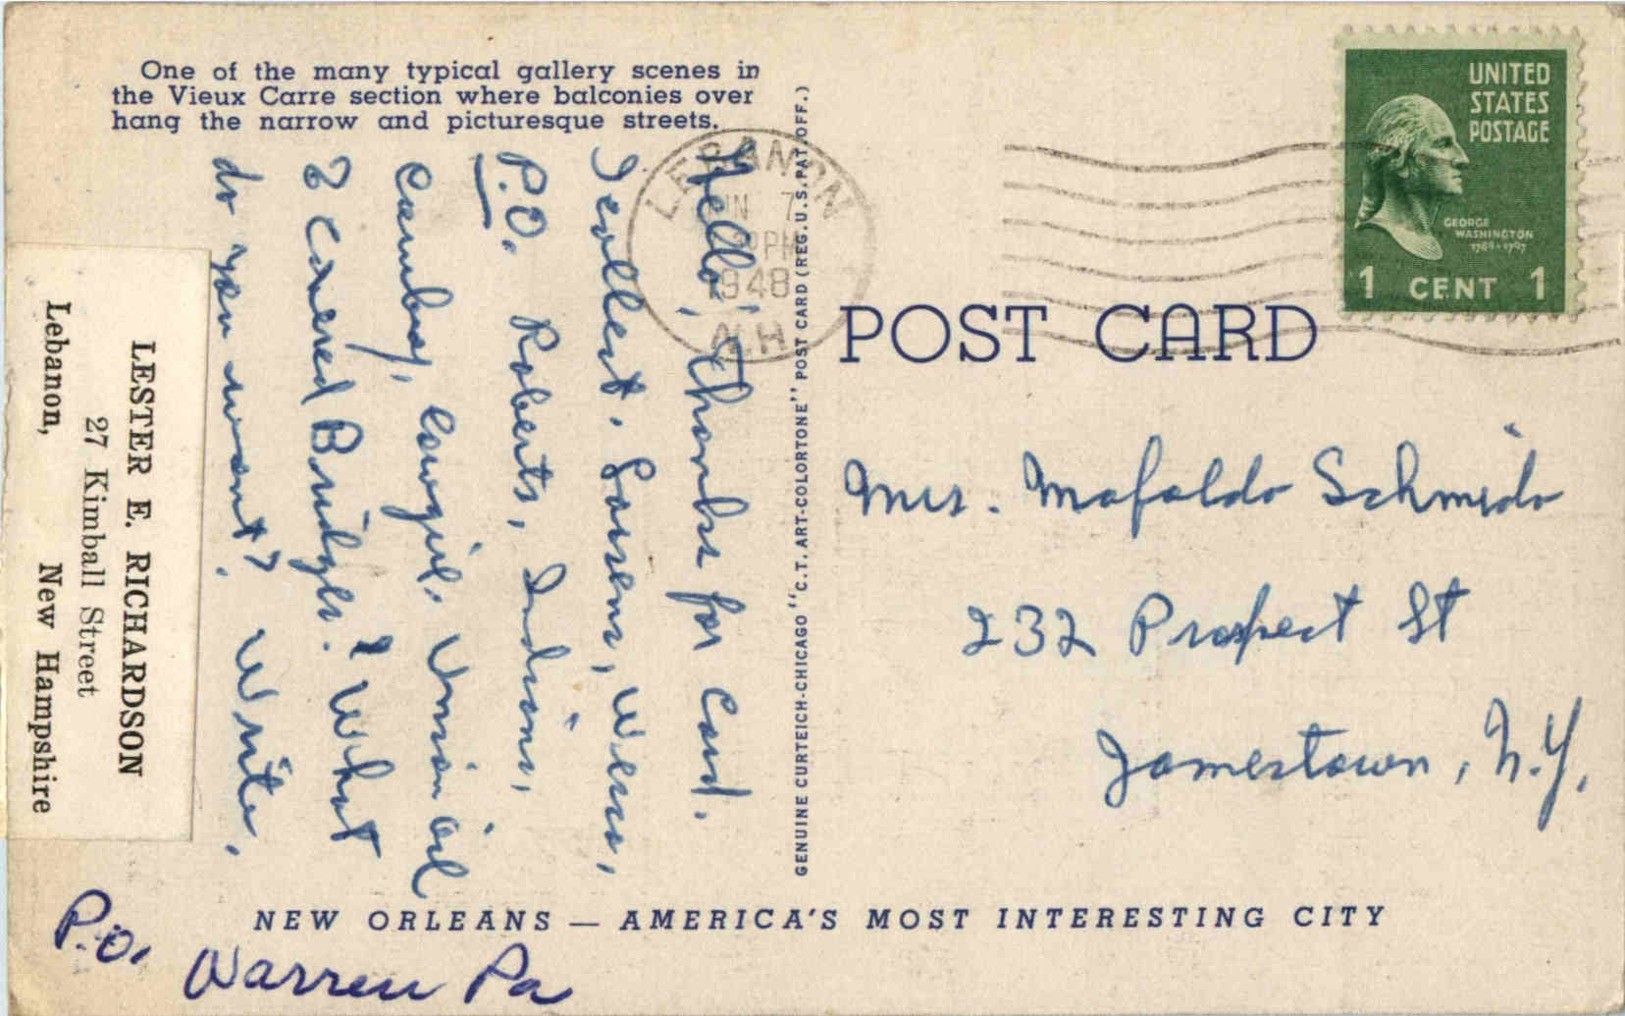 One of the many typical gallery scenes in
the Vieux Carre section where balconies over
hang the narrow and picturesque streets.
Hello, Thanks for Card.
I collect. Sarens, Views,
P.O. Roberts, Indians,
Cowboy, Cowgirl. Union Oil
& Covered Bridges. What
do you want? Write.
LESTER E. RICHARDSON
27 Kimball Street
Lebanon, New Hampshire
P.O.
Warren Pa
LEBANON
7
PM
1948
N.H.
GENUINE CURTEICH-CHICAGO "C.T. ART-COLORTONE" POST CARD (REG. U.S. PAT. OFF.)
UNITED
STATES
POSTAGE
GEORGE
WASHINGTON
1789-1797
1 CENT 1
POST CARD
Mrs. Mafalda Schmidt
232 Prospect St
Jamestown, N.Y.
NEW ORLEANS — AMERICA'S MOST INTERESTING CITY